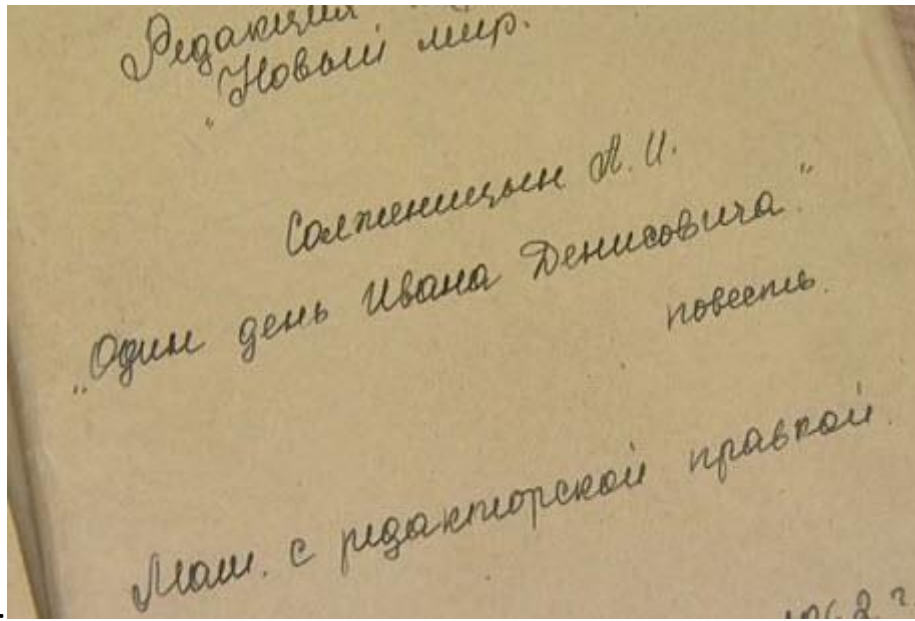 Редакция
"Новый мир.
Солженицын А. И.
„Один день Ивана Денисовича."
повесть.
Маш. с редакторской правкой.
1962 г